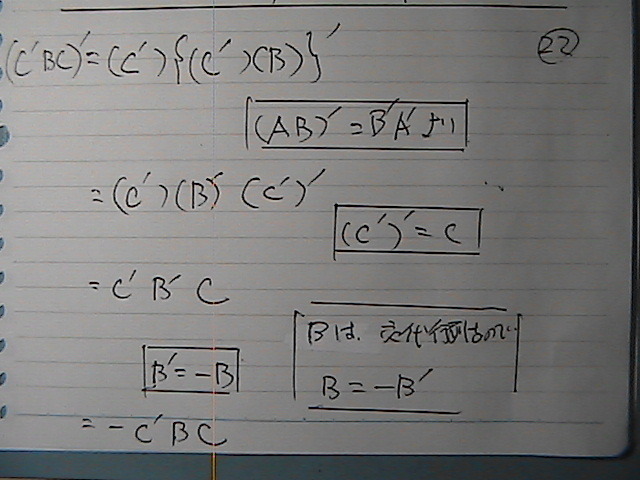 (C'BC)'=(C'){(C')(B)}'
22
(AB)'=B'A'より
=(C')(B)'(C')'
(C')'=C
=C'B'C
Bは、交代行列なので
B'=-B
B=-B'
=-C'BC